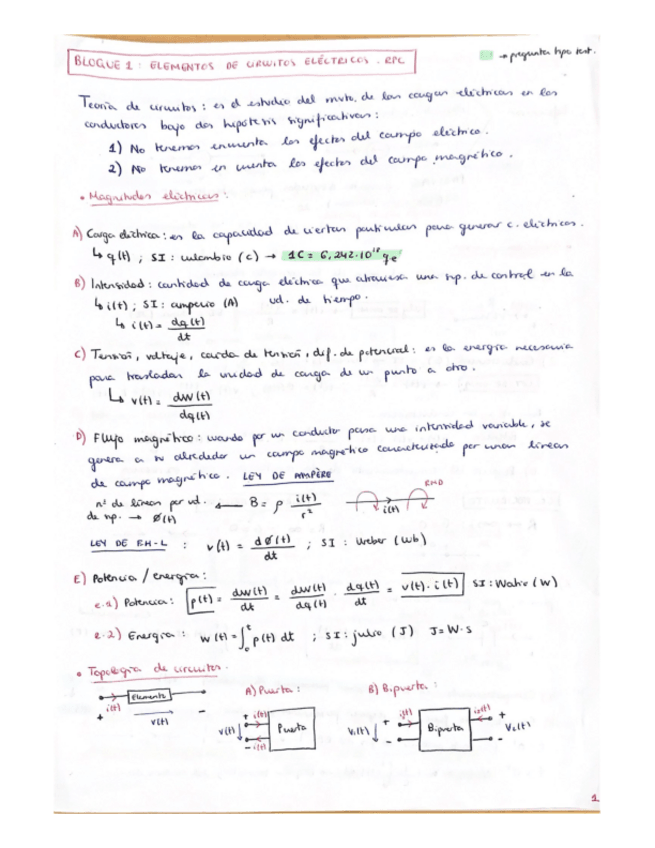 → pregunta tipo test.
BLOQUE 1: ELEMENTOS DE CIRCUITOS ELÉCTRICOS. RPC
Teoría de circuitos: es el estudio del mvto. de las cargas eléctricas en los
conductores bajo dos hipótesis significativas:
1) No tenemos en cuenta los efectos del campo eléctrico.
2) No tenemos en cuenta los efectos del campo magnético.
• Magnitudes eléctricas:
A) Carga eléctrica: es la capacidad de ciertas partículas para generar c. eléctricos.
↳ q(t) ; SI: culombio (C) → 1C = 6,242·10¹⁸ qe
B) Intensidad: cantidad de carga eléctrica que atraviesa una sup. de control en la
↳ i(t) ; SI: amperio (A) ud. de tiempo.
↳ i(t) = dq(t)/dt
C) Tensión, voltaje, caída de tensión, dif. de potencial: es la energía necesaria
para trasladar la unidad de carga de un punto a otro.
↳ v(t) = dw(t)/dq(t)
D) Flujo magnético: cuando por un conductor pasa una intensidad variable, se
genera a su alrededor un campo magnético caracterizado por unas líneas
de campo magnético. LEY DE AMPÈRE
nº de líneas por ud. ← B = ρ i(t)/r² RMD
de sup. → Ø(t) i(t)
LEY DE FH-L : v(t) = dØ(t)/dt ; SI: Weber (Wb)
E) Potencia / energía:
e.1) Potencia: p(t) = dw(t)/dt = dw(t)/dq(t) · dq(t)/dt = v(t)·i(t) SI: Watio (W)
e.2) Energía: w(t) = ∫₀ᵗ p(t) dt ; SI: julio (J) J=W·s
• Topología de circuitos.
A) Puerta: B) Bipuerta:
Elemento i(t) + - v(t)
v(t) + i(t) - i(t) Puerta
V₁(t) + - i₁(t) Bipuerta i₂(t) + - V₂(t)
1